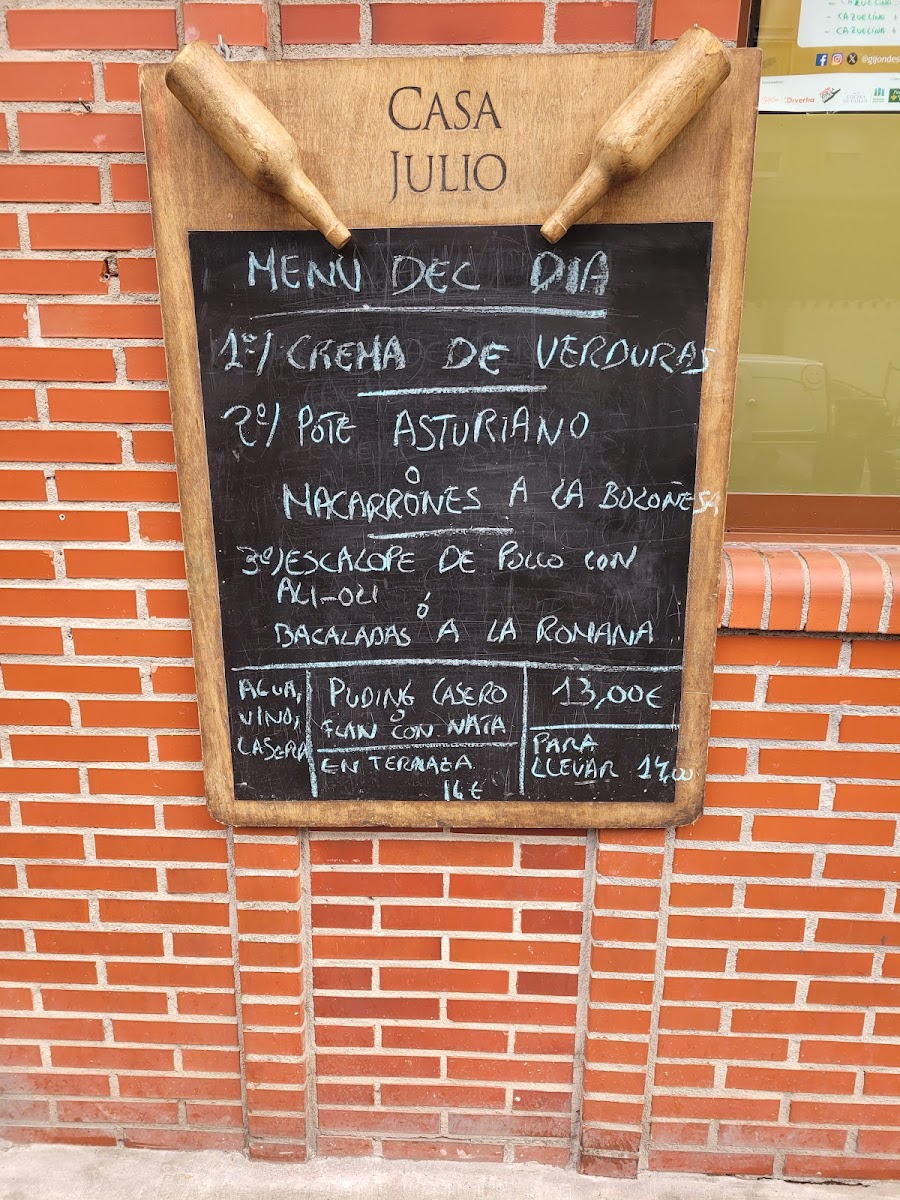 CAZUELINA
- CAZUELINA
- CAZUELINA
@gijondes
Divertia
CASA
JULIO
MENÚ DEL DIA
1º/ CREMA DE VERDURAS
2º/ POTE ASTURIANO
ó
MACARRONES A LA BOLOÑESA
3º/ ESCALOPE DE POLLO CON
ALI-OLI
ó
BACALADAS A LA ROMANA
AGUA,
VINO,
CASERA
PUDING CASERO
ó
FLAN CON NATA
EN TERRAZA
14€
13,00€
PARA
LLEVAR 14,00